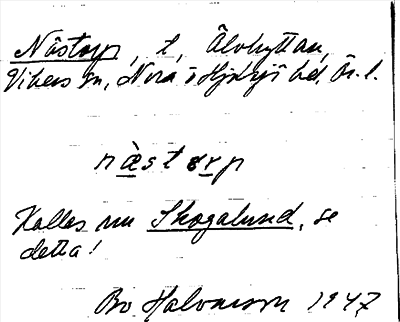 Nästorp, t, Älvhyttan,
Vikers sn, Nora o Hjulsjö hd, Ör. l.
næstorp
Kallas nu Skogalund, se
detta!
Bo Halvarson 1947